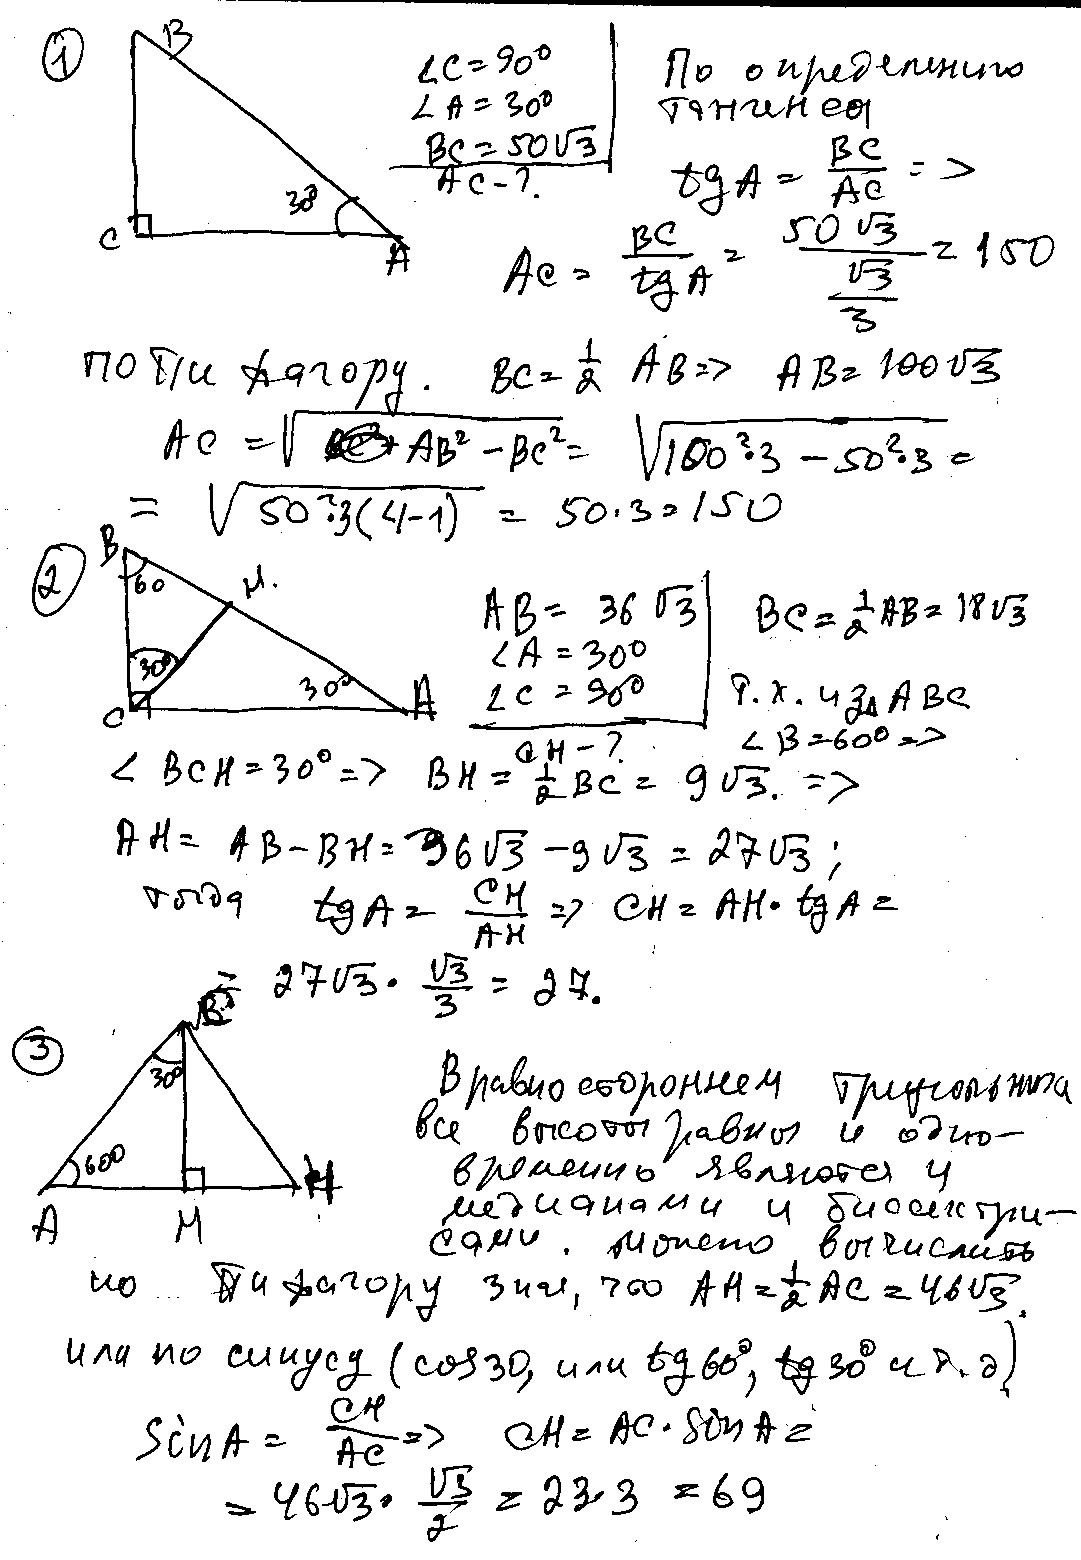 1
B
C
A
30°
∠C = 90°
∠A = 30°
BC = 50√3
AC - ?
По определению
тангенса
tg A = BC/AC =>
AC = BC/tg A = 50√3/(√3/3) = 150
по Пифагору. BC = 1/2 AB => AB = 100√3
AC = √(AB² - BC²) = √(100²·3 - 50²·3) =
= √(50²·3(4-1)) = 50·3 = 150
2
B
60
H.
30°
30°
C
A
AB = 36√3
∠A = 30°
∠C = 90°
CH - ?
BC = 1/2 AB = 18√3
Т.к. из Δ ABC
∠B = 60° =>
∠ BCH = 30° => BH = 1/2 BC = 9√3. =>
AH = AB - BH = 36√3 - 9√3 = 27√3;
тогда tg A = CH/AH => CH = AH · tg A =
= 27√3 · √3/3 = 27.
3
30°
60°
A
H
В равностороннем треугольнике
все высоты равны и одно-
временно являются и
медианами и биссектри-
сами. можно вычислить
по Пифагору зная, что AH = 1/2 AC = 46√3.
или по синусу (cos 30, или tg 60°, tg 30° и т.д)
sin A = CH/AC => CH = AC · sin A =
= 46√3 · √3/2 = 23·3 = 69